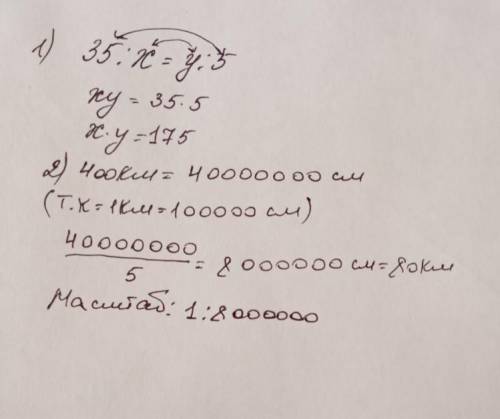 1) 35:x = y:5
xy = 35·5
x·y = 175
2) 400км = 40000000 см
(т.к = 1км = 100000 см)
40000000/5 = 8000000 см = 80км
Масштаб: 1:8000000